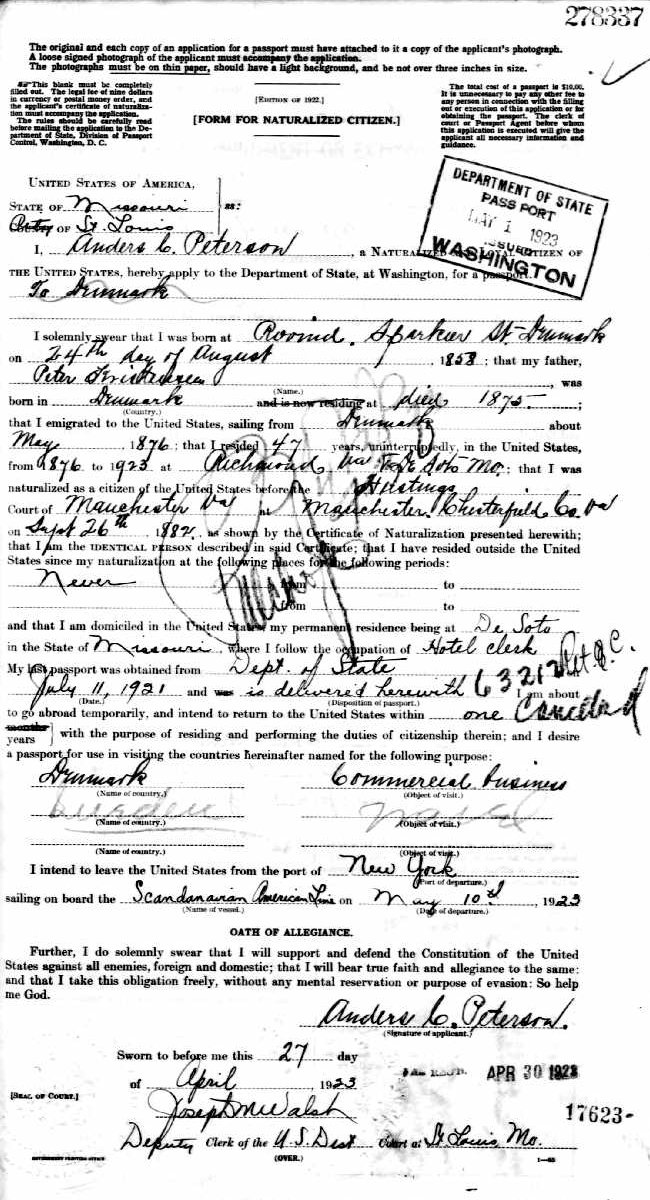 278337
The original and each copy of an application for a passport must have attached to it a copy of the applicant's photograph.
A loose signed photograph of the applicant must accompany the application.
The photographs must be on thin paper, should have a light background, and be not over three inches in size.
This blank must be completely
filled out. The legal fee of nine dollars
in currency or postal money order, and
the applicant's certificate of naturaliza-
tion must accompany the application.
The rules should be carefully read
before mailing the application to the De-
partment of State, Division of Passport
Control, Washington, D. C.
[EDITION OF 1922.]
[FORM FOR NATURALIZED CITIZEN.]
The total cost of a passport is $10.00.
It is unnecessary to pay any other fee to
any person in connection with the filling
out or execution of this application or for
obtaining the passport. The clerk of
court or Passport Agent before whom
this application is executed will give the
applicant all necessary information and
guidance.
DEPARTMENT OF STATE
PASSPORT
MAY 1 1923
ISSUED
WASHINGTON
UNITED STATES OF AMERICA,
STATE OF Missouri
ss:
OF St. Louis
I, Anders C. Peterson, a NATURALIZED AND LOYAL CITIZEN OF
THE UNITED STATES, hereby apply to the Department of State, at Washington, for a passport.
To Denmark
I solemnly swear that I was born at Rooind. Sparkier St. Denmark
on 24th day of August, 1858; that my father,
Peter Kristensen, was
(Name.)
born in Denmark and is now residing at died 1875;
(Country.)
that I emigrated to the United States, sailing from Denmark about
May, 1876; that I resided 47 years, uninterruptedly, in the United States,
from 1876 to 1923 at Richmond Va & De Soto Mo.; that I was
naturalized as a citizen of the United States before the Hustings
Court of Manchester Va at Manchester. Chesterfield Co. Va
on Sept 26th, 1882, as shown by the Certificate of Naturalization presented herewith;
that I am the IDENTICAL PERSON described in said Certificate; that I have resided outside the United
States since my naturalization at the following places for the following periods:
Never from to
from to
and that I am domiciled in the United States, my permanent residence being at De Soto
in the State of Missouri, where I follow the occupation of Hotel clerk
My last passport was obtained from Dept. of State
July 11, 1921 and was is delivered herewith 63212 I am about
(Date.) (Disposition of passport.)
Cancelled
to go abroad temporarily, and intend to return to the United States within one
months
years
with the purpose of residing and performing the duties of citizenship therein; and I desire
a passport for use in visiting the countries hereinafter named for the following purpose:
Denmark Commercial business
(Name of country.) (Object of visit.)
(Name of country.) (Object of visit.)
(Name of country.) (Object of visit.)
I intend to leave the United States from the port of New York
(Port of departure.)
sailing on board the Scandanavian American Line on May 10th, 1923
(Name of vessel.) (Date of departure.)
OATH OF ALLEGIANCE.
Further, I do solemnly swear that I will support and defend the Constitution of the United
States against all enemies, foreign and domestic; that I will bear true faith and allegiance to the same;
and that I take this obligation freely, without any mental reservation or purpose of evasion: So help
me God.
Anders C. Peterson.
(Signature of applicant.)
Sworn to before me this 27 day
of April, 1923
APR 30 1923
[SEAL OF COURT.]
Joseph M Walsh
17623-
Deputy Clerk of the U.S. Dist Court at St. Louis, Mo.
GOVERNMENT PRINTING OFFICE
(OVER.)